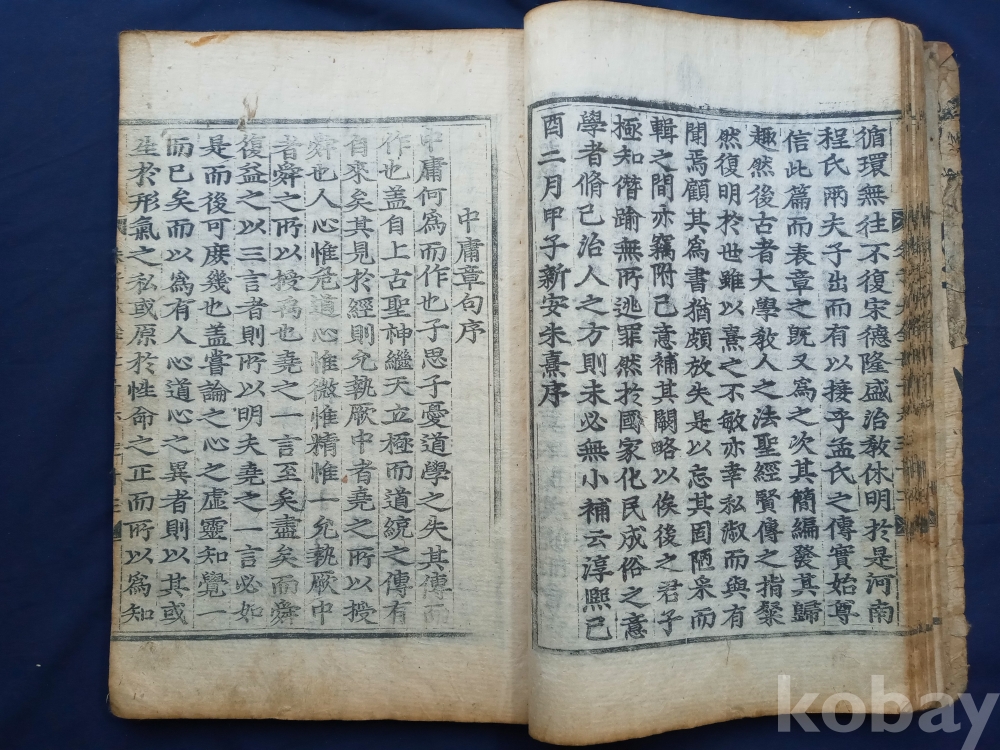 循環無往不復宋德隆盛治敎休明於是河南
程氏兩夫子出而有以接乎孟氏之傳實始尊
信此篇而表章之旣又爲之次其簡編發其歸
趣然後古者大學敎人之法聖經賢傳之指粲
然復明於世雖以熹之不敏亦幸私淑而與有
聞焉顧其爲書猶頗放失是以忘其固陋采而
輯之間亦竊附己意補其闕略以俟後之君子
極知僭踰無所逃罪然於國家化民成俗之意
學者脩己治人之方則未必無小補云淳熙己
酉二月甲子新安朱熹序
中庸章句序
中庸何爲而作也子思子憂道學之失其傳而
作也盖自上古聖神繼天立極而道統之傳有
自來矣其見於經則允執厥中者堯之所以授
舜也人心惟危道心惟微惟精惟一允執厥中
者舜之所以授禹也堯之一言至矣盡矣而舜
復益之以三言者則所以明夫堯之一言必如
是而後可庶幾也盖嘗論之心之虛靈知覺一
而已矣而以爲有人心道心之異者則以其或
生於形氣之私或原於性命之正而所以爲知
kobay